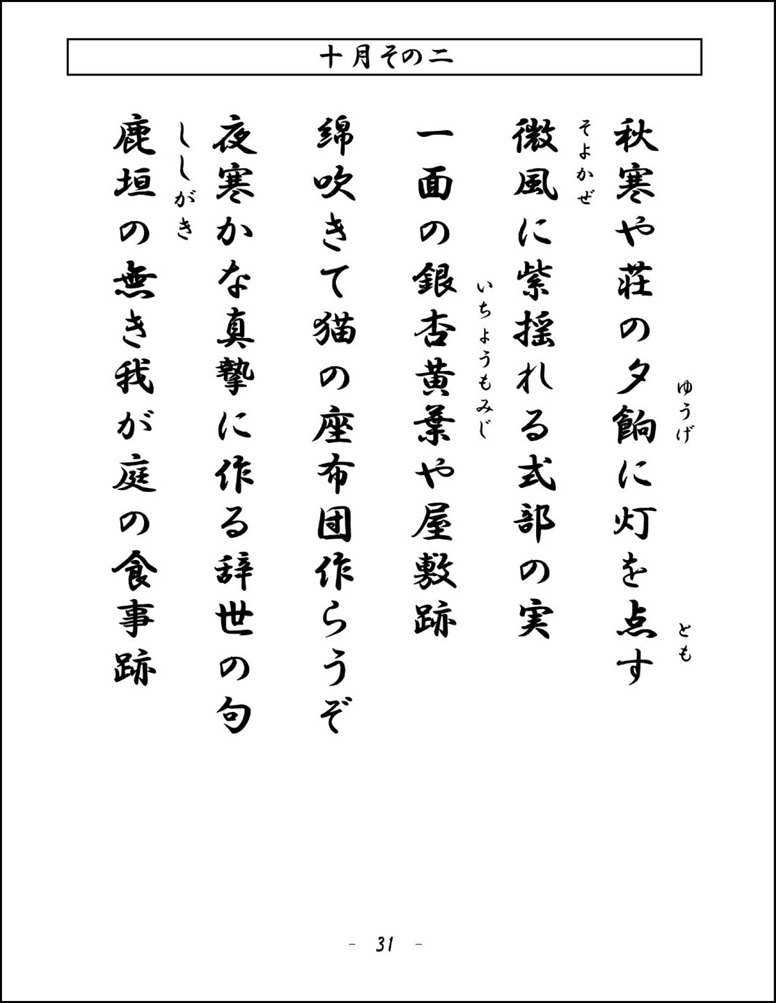 十月その二
秋寒や荘の夕餉に灯を点す
ゆうげ
とも
微風に紫揺れる式部の実
そよかぜ
一面の銀杏黄葉や屋敷跡
いちょうもみじ
綿吹きて猫の座布団作らうぞ
夜寒かな真摯に作る辞世の句
鹿垣の無き我が庭の食事跡
ししがき
- 31 -